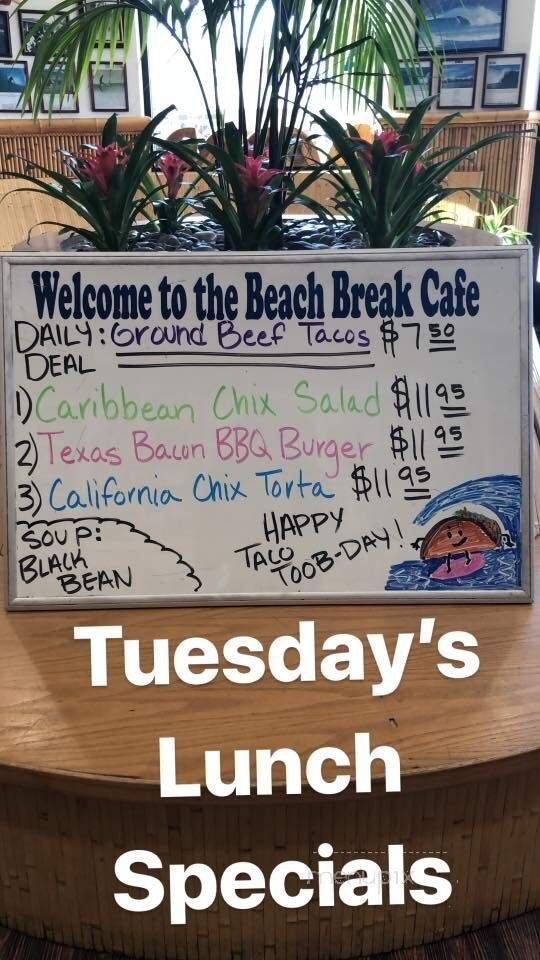 Welcome to the Beach Break Cafe
DAILY: Ground Beef Tacos $7 50
DEAL
1) Caribbean Chix Salad $11 95
2) Texas Bacon BBQ Burger $11 95
3) California Chix Torta $11 95
SOUP:
BLACK
BEAN
HAPPY
TACO
TOOB-DAY!
Tuesday's
Lunch
Specials
menupix